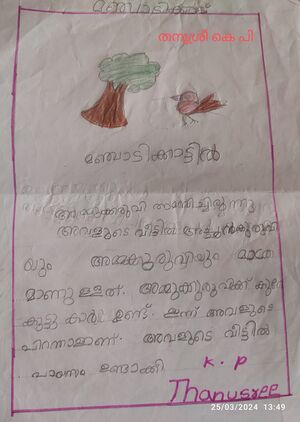 തനുശ്രീ കെ പി
മഞ്ചാടിക്കാട്ടിൽ
അമ്മുക്കുരുവി താമസിച്ചിരുന്നു
അവളുടെ വീട്ടിൽ അച്ഛൻകുരുവി
യും അമ്മക്കുരുവിയും മാത്ര
മാണുള്ളത്. അമ്മുക്കുരുവിക്ക് കുറേ
കൂട്ടുകാർ ഉണ്ട്. ഇന്ന് അവളുടെ
പിറന്നാളാണ്. അവളുടെ വീട്ടിൽ
പായസം ഉണ്ടാക്കി
K. P
Thanusree
25/03/2024 13:49